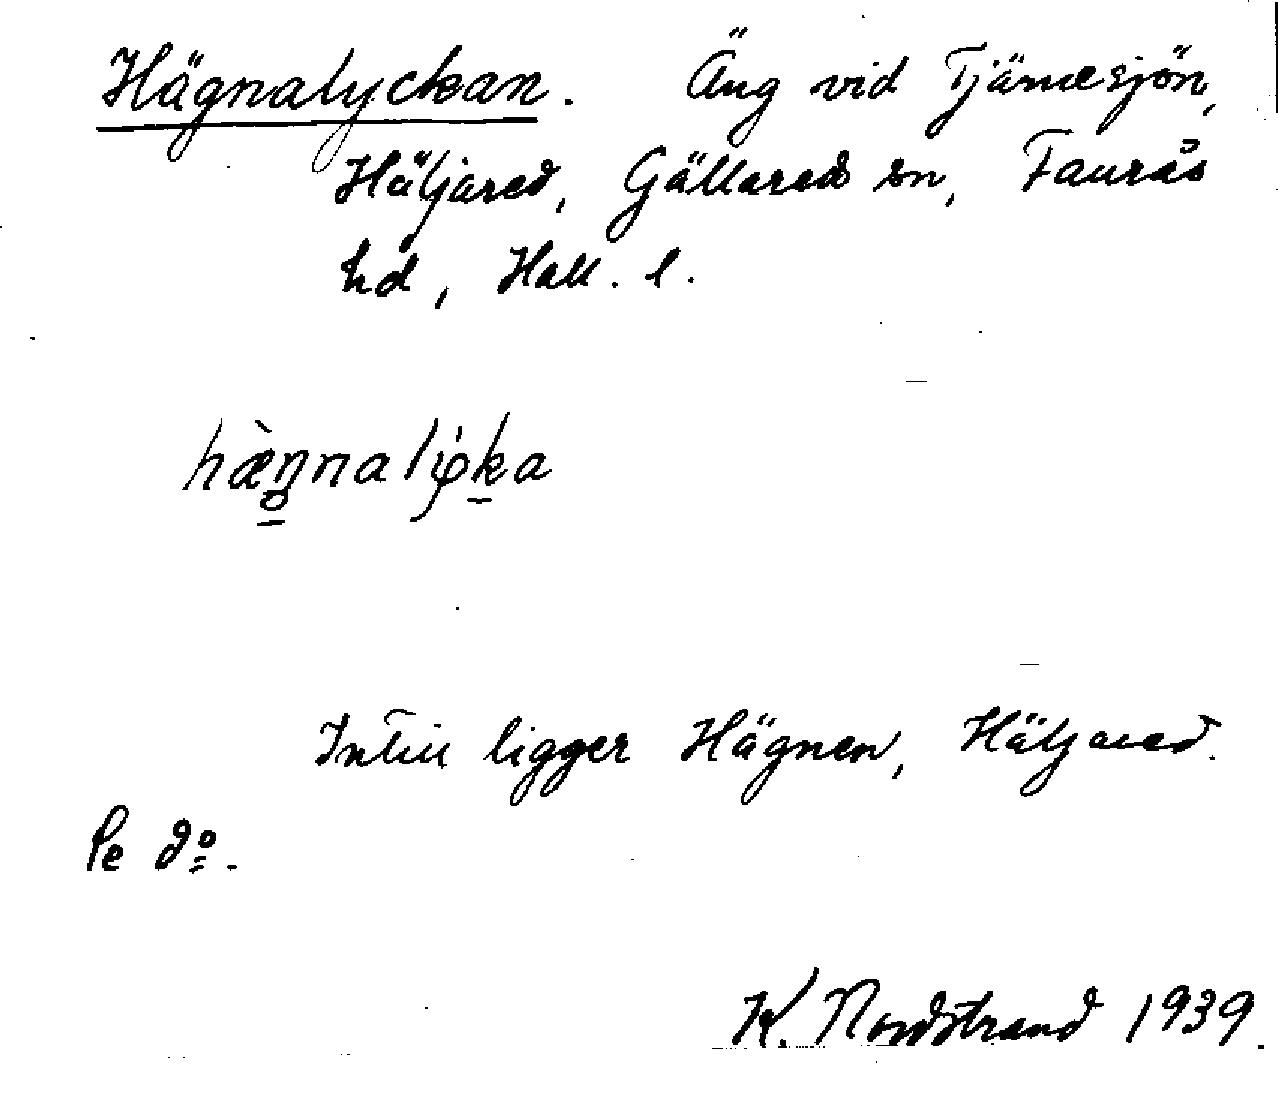 Hägnalyckan. Äng vid Tjärnesjön,
Häljared, Gällareds sn, Faurås
hd, Hall. l.
hæ̀ŋnalẏka
Intill ligger Hägnen, Häljared.
Pe do.
K. Nordstrand 1939.